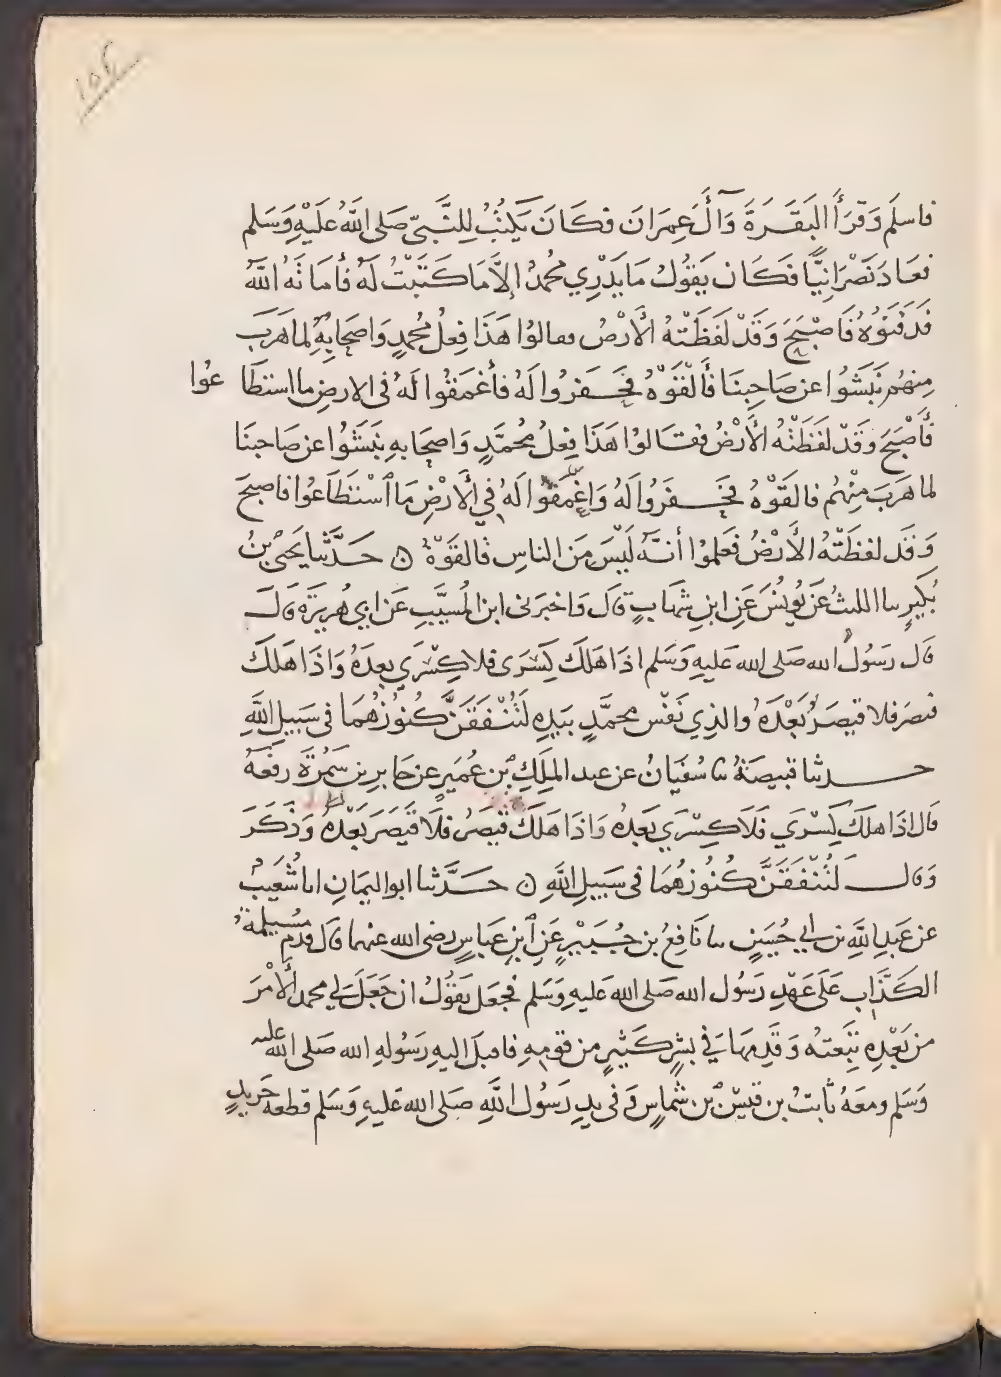 ١٥٤
فاسلَم وَقَرَأَ البَقَرَةَ وَآلَ عِمرَانَ فكَانَ يَكتُبُ لِلنَّبِيّ صَلى اللهُ عَلَيْهِ وَسَلم
فعَادَ نَصْرَانِيًّا فَكَان يَقوُلُ مَا يَدْرِي مُحمدٌ اِلاَّ مَا كَتَبْتُ لَهُ فأمَاتَهُ اللهُ
فَدَفَنوُهُ فَاصْبَحَ وَقَدْ لَفَظَتْهُ الأَرْضُ فقالوُا هَذَا فِعْلُ مُحمدٍ وَاصحَابِهِ لما هَرَبَ
مِنهُم نَبَشُوا عن صَاحِبِنَا فَأَلْقَوْهُ فَحَفَرُوا لهُ فأَعْمَقُوا لهُ فى الارضِ ما استطَاعُوا
فَأَصْبَحَ وقَدْ لفَظَتْهُ الأَرْضُ فقَالوُا هَذَا فِعلُ مُحمَّدٍ وَاصحَابهِ نَبَشُوا عن صَاحبنَا
لما هَرَبَ مِنْهُم فالقَوْهُ فَحَفَرُوا لهُ وَاعْمَقُوا لهُ فِي اْلأرْضِ مَا اسْتَطَاعُوا فاصبَحَ
وَقَد لفظَتْهُ الأَرْضُ فعَلموُا أنَّهُ لَيْسَ مِنَ الناسِ فَالقَوْهُ ن حَدَّثنا يَحيَى بنُ
بُكَيرٍ سا الليثُ عَن يُونسَ عَنِ ابنِ شهَابٍ قَال وَاخبَرنى ابن المُسيَّبِ عَن ابي هُريرَة قَالَ
قَال رَسُولُ الله صَلى الله عَليهِ وَسَلم اذَا هَلكَ كِسْرَى فلا كِسْرَي بعدَهُ وَاذَا هَلكَ
قيصَر فلا قَيصَرَ بَعْدَهُ والذِي نَفْس محمَّدٍ بيَدِهِ لتُنْفَقَنَّ كُنوُزهُمَا فى سَبيلِ اللهِ
حدثنا قبيصَةُ سا سُفيَانُ عن عبد الملِكِ بن عُمَيرٍ عن جَابرِ بن سَمُرَةَ رفَعَهُ
قَال اذَا هلَكَ كِسْرَي فَلاَ كِسْرَي بَعدَهُ وَاذَا هَلكَ قَيصَرُ فلاَ قَيصَرَ بَعْدَهُ وَذَكَرَ
وَقال لتُنْفَقَنَّ كُنُوزهُمَا فى سَبيلِ اللهِ ن حَدَّثنا ابو اليمَانِ انا شُعَيبٌ
عن عَبدِ اللهِ بن ابي حُسَينٍ سا نَافِعُ بن جُبَيْرٍ عَنِ ابنِ عبَاسٍ رضى الله عنهما قَال قدم مُسَيلمةُ
الكَذَّاب عَلَى عَهْدِ رَسُول الله صَلى الله عَليهِ وَسَلم فجعَل يَقُولُ ان جَعَلَ لي محمد الأَمْرَ
من بَعْدِهِ تَبِعتهُ وَقَدِمهَا فى بشرٍ كثيرٍ من قومِهِ فاقبلَ اليهِ رَسُولهِ الله صَلى الله عليه
وَسَلم ومعَهُ ثَابتُ بن قَيسْ بن شمَاسٍ وَفى يدِ رَسُول اللهِ صَلى الله عَليهِ وَسَلم قطعةُ جَريدٍ